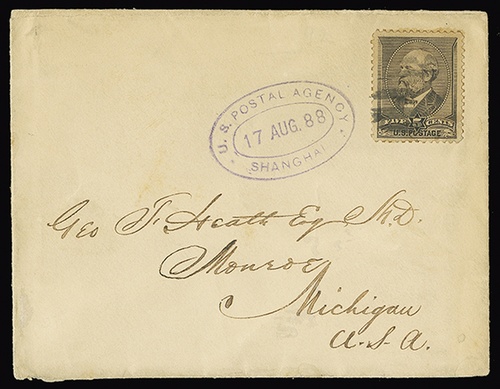 U.S. POSTAL AGENCY
17 AUG. 88
SHANGHAI
FIVE 5 CENTS
U.S. POSTAGE
Geo T. Heath Esq M.D.
Monroe
Michigan
U.S.A.